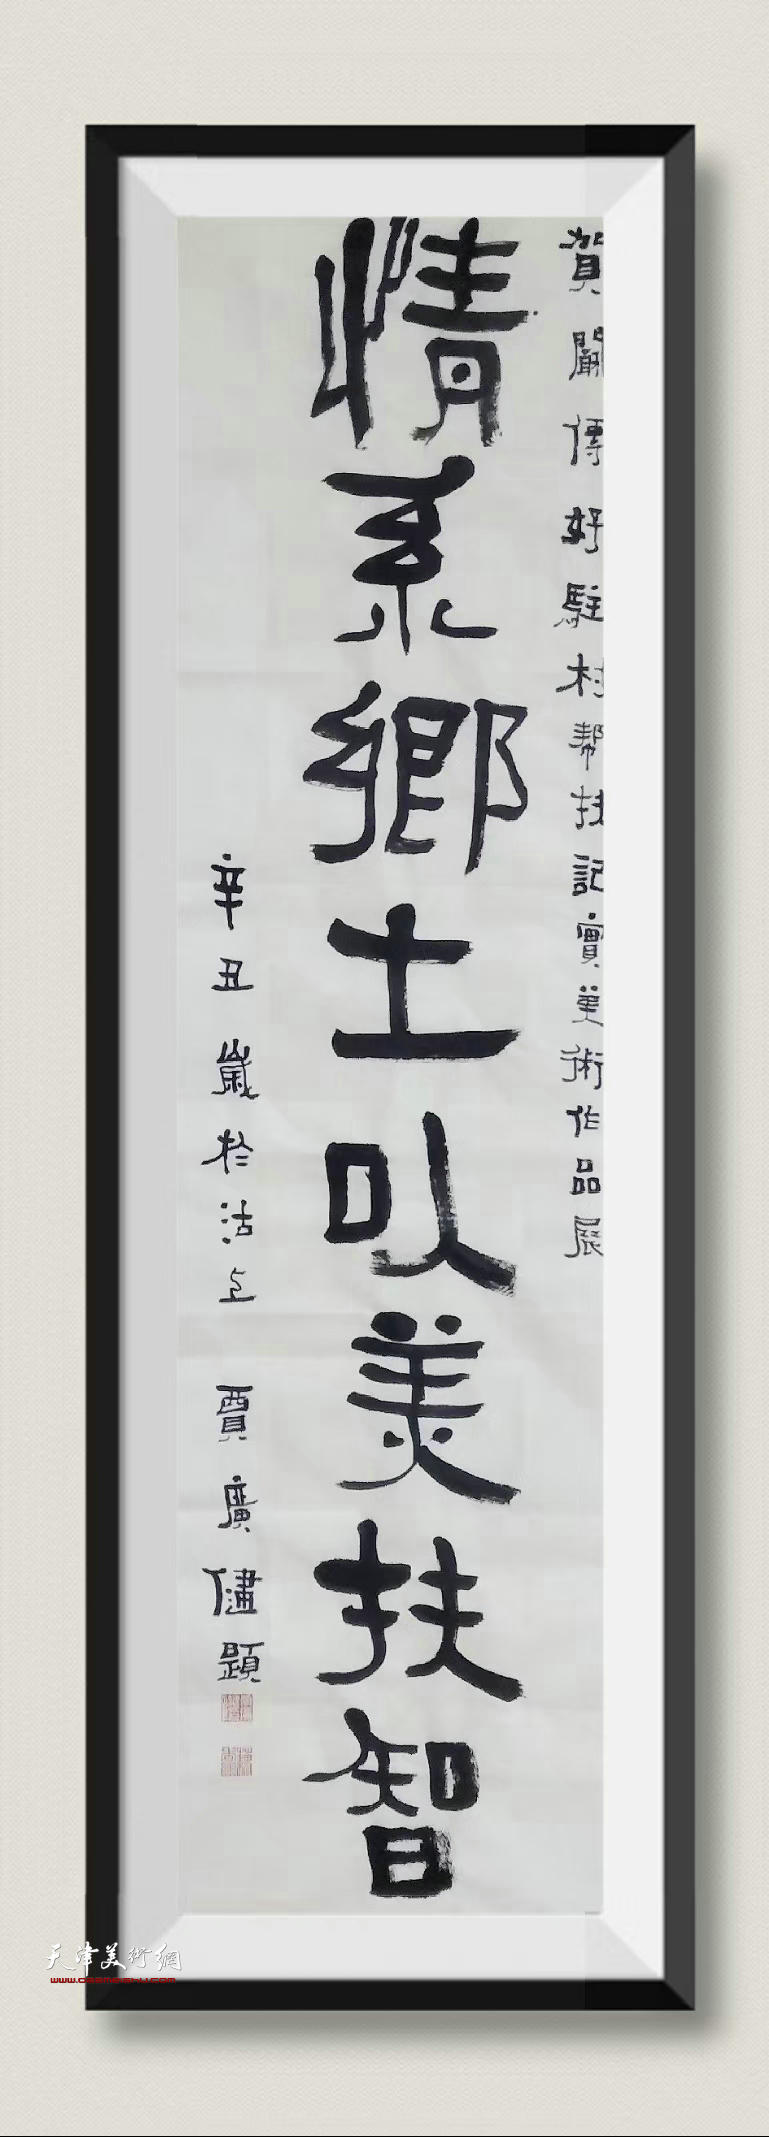 賀闞傳好駐村帮扶記實美術作品展
情系鄉土以美扶智
辛丑歲於沽上 賈廣健題
天津美術網